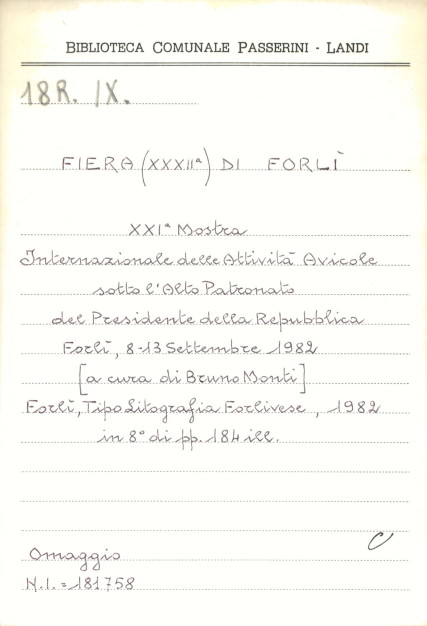 BIBLIOTECA COMUNALE PASSERINI - LANDI
18R. IX.
FIERA (XXXIIª) DI FORLÌ
XXIª Mostra
Internazionale delle Attività Avicole
sotto l'Alto Patronato
del Presidente della Repubblica
Forlì, 8-13 Settembre 1982
[a cura di Bruno Monti]
Forlì, Tipo Litografia Forlivese, 1982
in 8° di pp. 184 ill.
C
Omaggio
N.I. = 181758